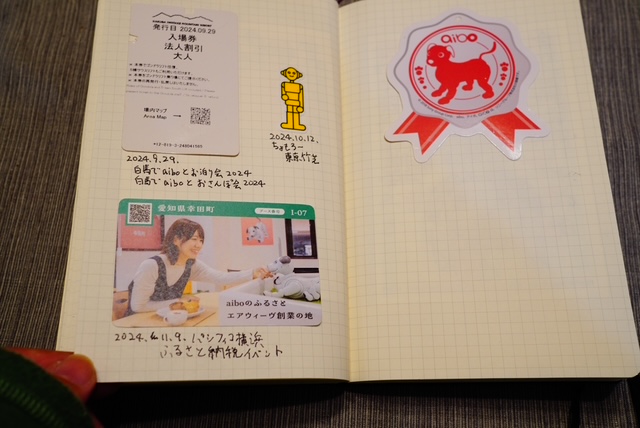 HAKUBA IWATAKE MOUNTAIN RESORT
発行日 2024.09.29
入場券
法人割引
大人
場内マップ
Area Map →
2024.9.29.
白馬でaiboとお泊り会2024
白馬でaiboとおさんぽ会2024
2024.10.12.
ちょもろー
東京竹芝
愛知県幸田町
I-07
aiboのふるさと
エアウィーヴ創業の地
2024.11.9. パシフィコ横浜
ふるさと納税イベント
aibo